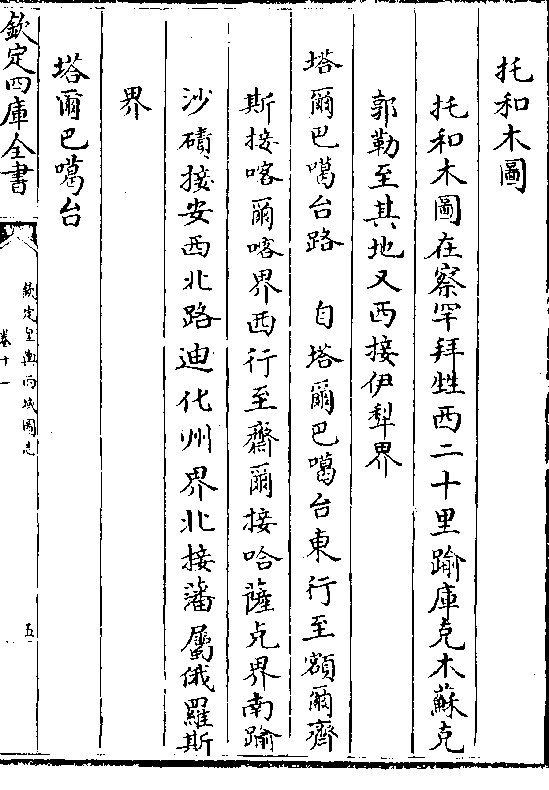 托和木圖
托和木圖在察罕拜甡西二十里踰庫克木蘇克
郭勒至其地又西接伊犁界
塔爾巴噶台路　自塔爾巴噶台東行至額爾齊
斯接喀爾喀界西行至齋爾接哈薩克界南踰
沙磧接安西北路迪化州界北接藩屬俄羅斯
界
塔爾巴噶台
欽定四庫全書
欽定皇輿西域圖志
卷十一
五